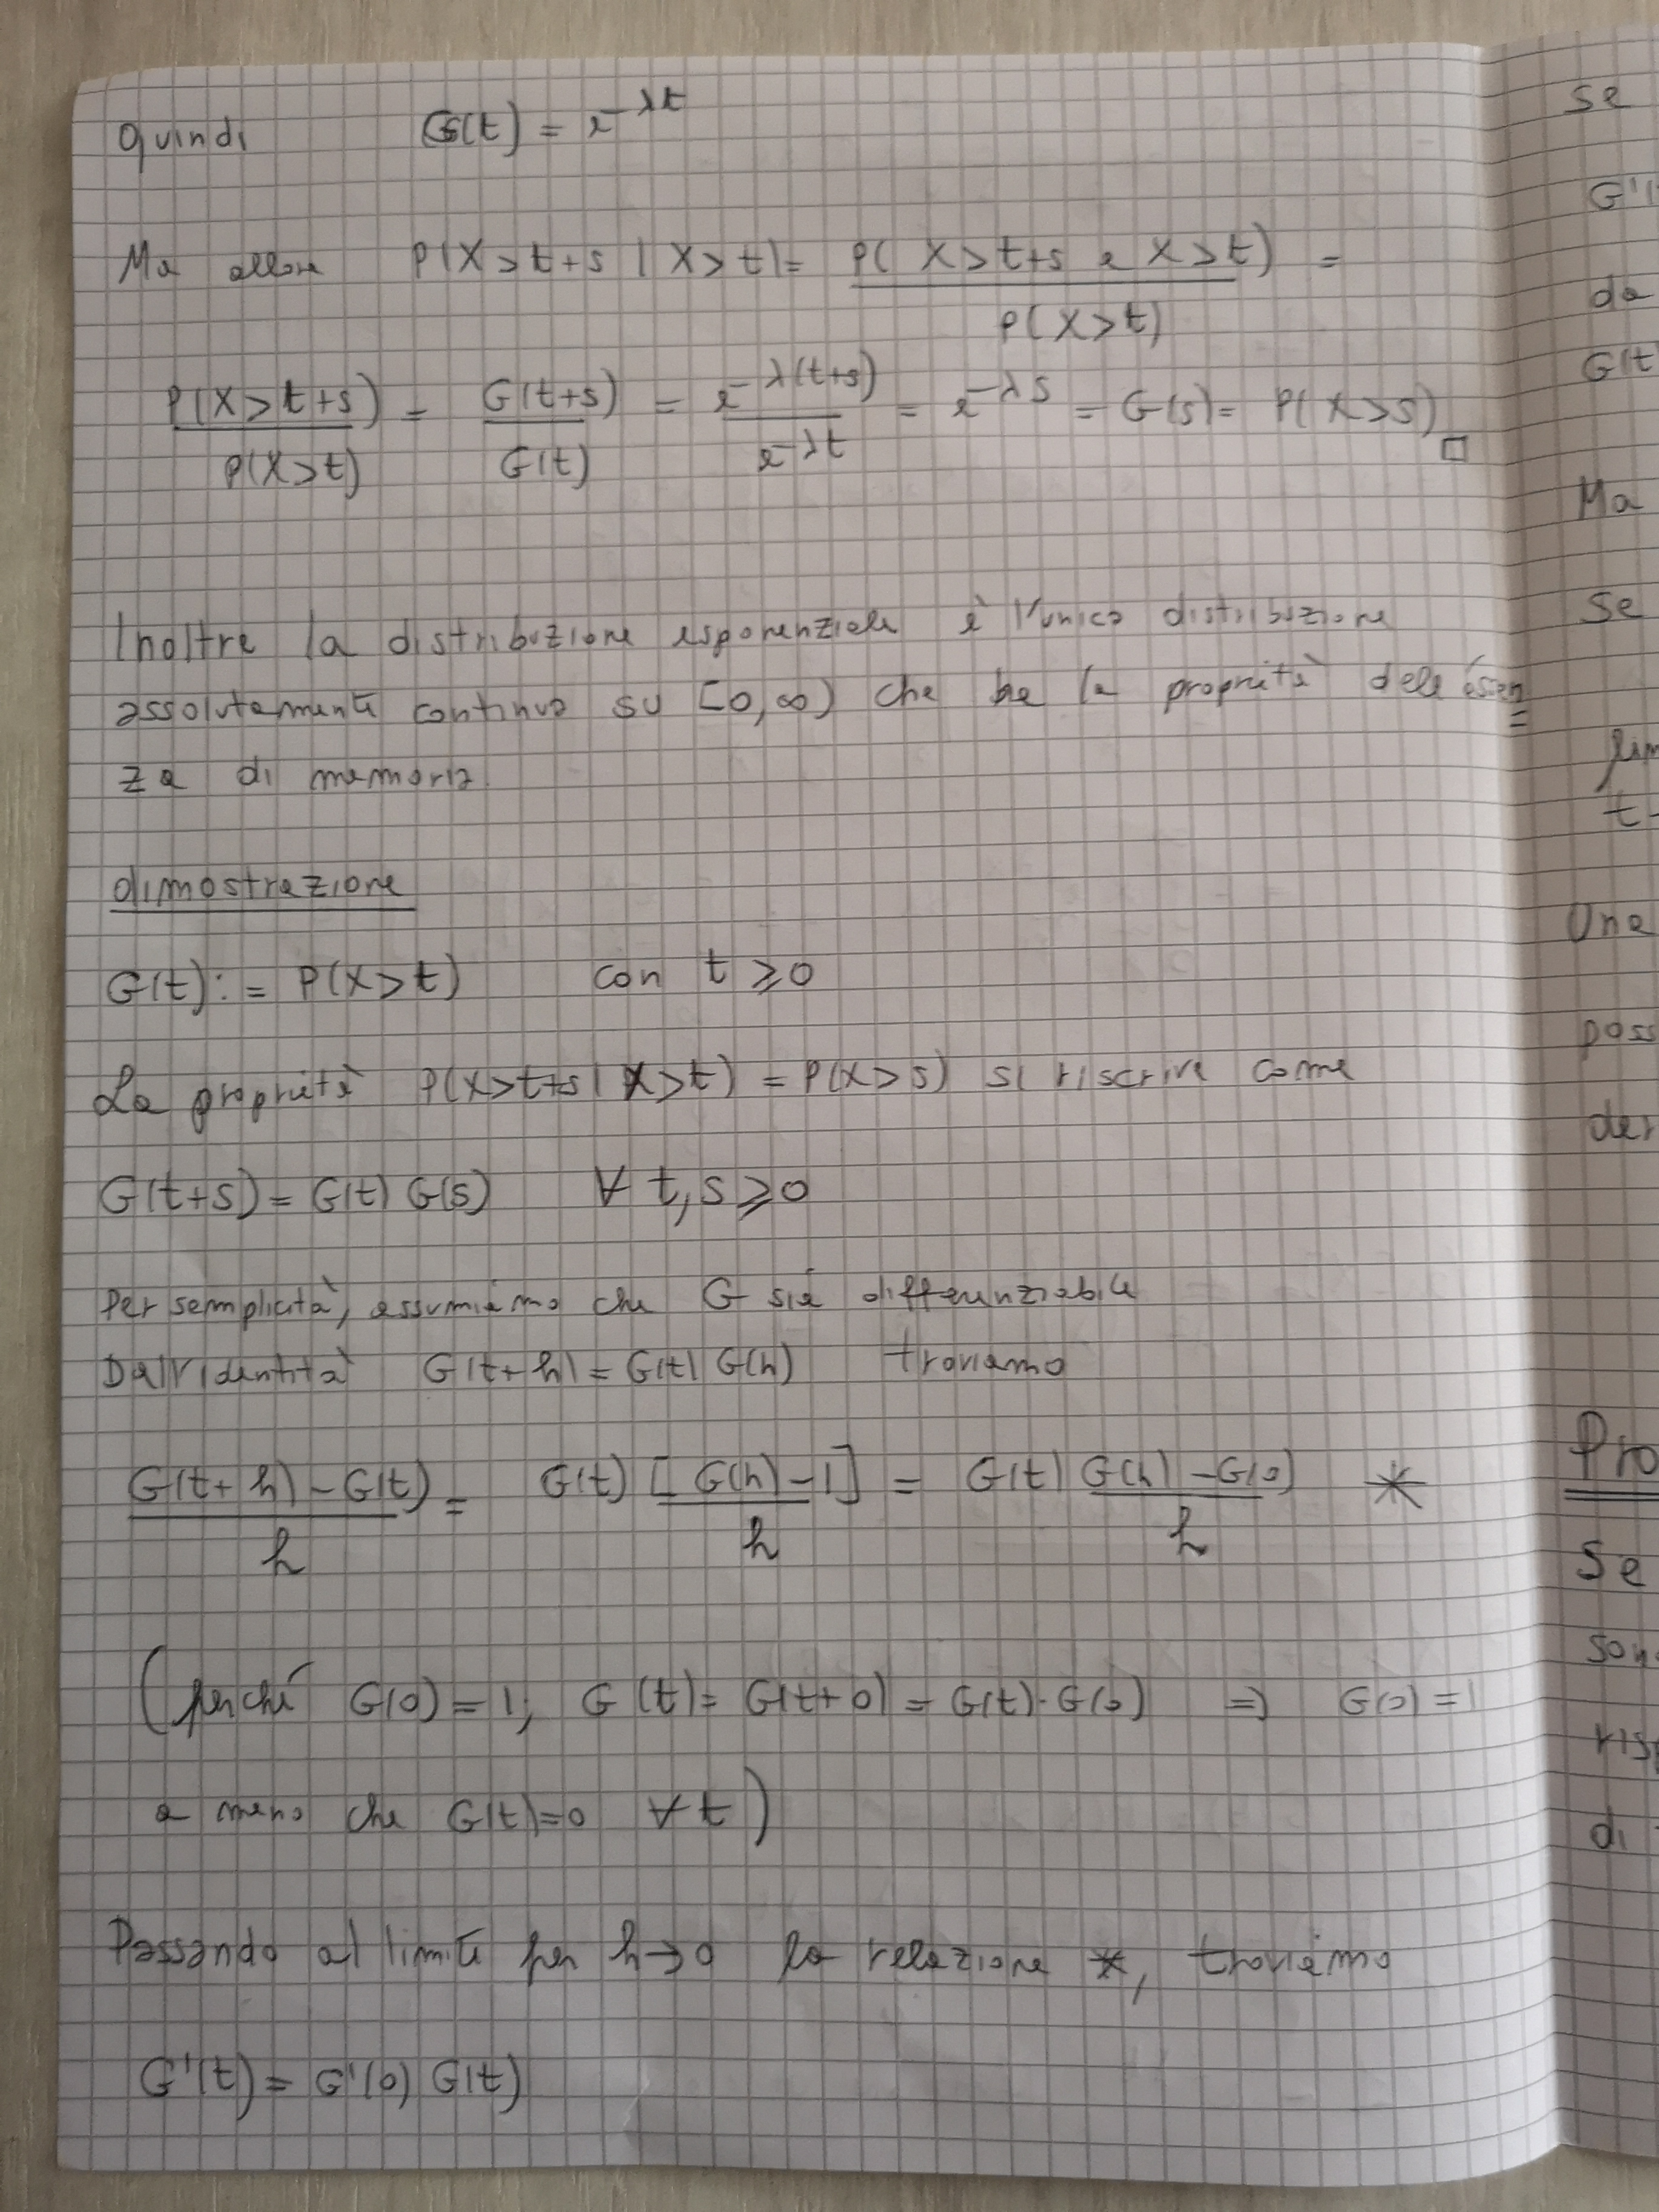 Quindi G(t) = e^-λt
Ma allora P(X>t+s | X>t) = P(X>t+s e X>t) =
P(X>t)
P(X>t+s) = G(t+s) = e^-λ(t+s) = e^-λs = G(s) = P(X>s) □
P(X>t) G(t) e^-λt
Inoltre la distribuzione esponenziale è l'unica distribuzione
assolutamente continua su [0,∞) che ha la proprietà dell'assen=
za di memoria.
dimostrazione
G(t) := P(X>t) con t ≥ 0
La proprietà P(X>t+s | X>t) = P(X>s) si riscrive come
G(t+s) = G(t) G(s) ∀ t,s ≥ 0
Per semplicità, assumiamo che G sia differenziabile
Dall'identità G(t+h) = G(t) G(h) troviamo
G(t+h) - G(t) = G(t) [G(h) - 1] = G(t) G(h) - G(0) *
h h h
(perché G(0) = 1; G(t) = G(t+0) = G(t)·G(0) ⇒ G(0) = 1
a meno che G(t)=0 ∀ t)
Passando al limite per h→0 la relazione *, troviamo
G'(t) = G'(0) G(t)
Se
G'(
da
G(t
Ma
Se
lim
t-
Una
poss
der
Pro
Se
son
ris
di